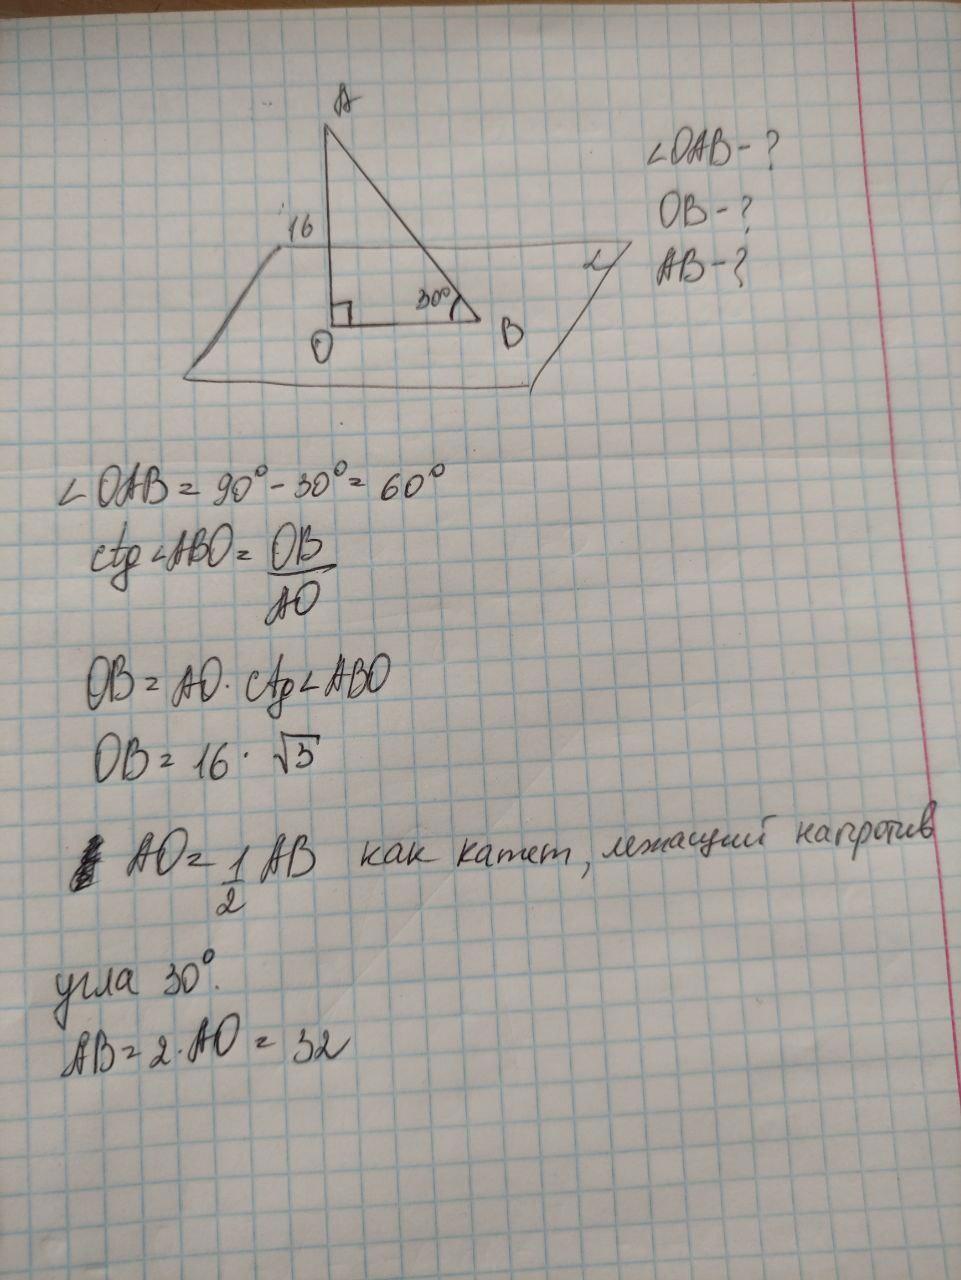 A
∠OAB - ?
16
OB - ?
30°
∠
AB - ?
O
B
∠OAB = 90° - 30° = 60°
ctg∠ABO = OB/AO
OB = AO · ctg∠ABO
OB = 16 · √3
AO = 1/2 AB как катет, лежащий напротив
угла 30°.
AB = 2 · AO = 32